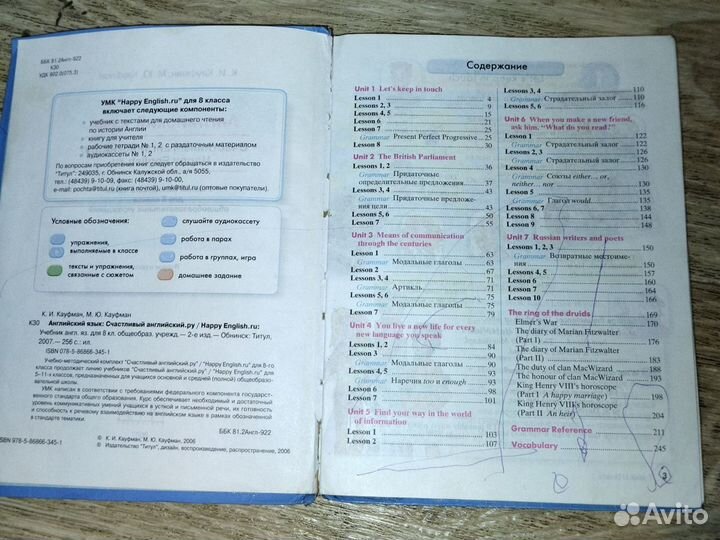 ББК 81.2Англ-922
К30
УДК 802.0(075.3)
УМК "Happy English.ru" для 8 класса
включает следующие компоненты:
- учебник с текстами для домашнего чтения
по истории Англии
- книгу для учителя
- рабочие тетради № 1, 2 с раздаточным материалом
- аудиокассеты № 1, 2
По вопросам приобретения книг следует обращаться в издательство
"Титул": 249035, г. Обнинск Калужской обл., а/я 5055,
тел.: (48439) 9-10-09, факс: (48439) 9-10-00,
e-mail: pochta@titul.ru (книга почтой), umk@titul.ru (оптовые покупатели).
Условные обозначения:
слушайте аудиокассету
упражнения,
выполняемые в классе
работа в парах
работа в группах, игра
тексты и упражнения,
связанные с сюжетом
домашнее задание
К. И. Кауфман, М. Ю. Кауфман
К30 Английский язык: Счастливый английский.ру / Happy English.ru:
Учебник англ. яз. для 8 кл. общеобразоват. учрежд. — 2-е изд. — Обнинск: Титул,
2007. — 256 с.: ил.
ISBN 978-5-86866-345-1
Учебно-методический комплект "Счастливый английский.ру" / "Happy English.ru" для 8-го
класса продолжает линию учебников "Счастливый английский.ру" / "Happy English.ru" для
5–11-х классов, предназначен для учащихся основной и средней (полной) общеобразова-
тельной школы.
УМК написан в соответствии с требованиями федерального компонента государст-
венного стандарта общего образования. Курс обеспечивает необходимый и достаточный
уровень коммуникативных умений учащихся в устной и письменной речи, их готовность
и способность к речевому взаимодействию на английском языке в рамках обозначенной
в стандарте тематики.
ББК 81.2Англ-922
© К. И. Кауфман, М. Ю. Кауфман, 2006
© Издательство "Титул", дизайн, воспроизведение, распространение, 2006
ISBN 978-5-86866-345-1
Содержание
Unit 1 Let's keep in touch
Lesson 1 4
Lessons 2, 3 9
Lessons 4, 5 15
Lesson 6 21
Lesson 7 25
Grammar Present Perfect Progressive 25
Lesson 8 30
Unit 2 The British Parliament
Lessons 1, 2 36
Grammar Придаточные
определительные предложения 37
Lessons 3, 4 43
Grammar Придаточные предложе-
ния цели 43
Lessons 5, 6 50
Lesson 7 55
Unit 3 Means of communication
through the centuries
Lesson 1 63
Grammar Модальные глаголы 63
Lesson 2 67
Lessons 3, 4 71
Grammar Артикль 71
Lessons 5, 6 75
Grammar Модальные глаголы 75
Lesson 7 79
Unit 4 You live a new life for every
new language you speak
Lessons 1, 2 84
Lesson 3 90
Grammar Модальные глаголы 90
Lessons 4, 5 94
Grammar Наречия too и enough 94
Lesson 6 98
Lesson 7 101
Unit 5 Find your way in the world
of information
Lesson 1 103
Lesson 2 107
Lessons 3, 4 110
Grammar Страдательный залог 110
Lessons 5, 6 116
Unit 6 When you make a new friend,
ask him, "What do you read?"
Lesson 1 122
Grammar Страдательный залог 122
Lessons 2, 3 126
Grammar Страдательный залог 126
Lesson 4 130
Grammar Союзы either... or,
neither... nor 130
Lesson 5 135
Grammar Глагол would 135
Lessons 6, 7 138
Lesson 8 144
Lesson 9 148
Unit 7 Russian writers and poets
Lessons 1, 2, 3 150
Grammar Возвратные местоиме-
ния 150
Lessons 4, 5 157
Lesson 6 160
Lesson 7 164
Lesson 10 166
The ring of the druids 169
Elmer's War 170
The diary of Marian Fitzwalter
(Part I) 176
The diary of Marian Fitzwalter
(Part II)
The duty of clan MacWizard 188
The honour of clan MacWizard 193
King Henry VIII's horoscope
(Part I A happy marriage) 198
King Henry VIII's horoscope
(Part II An heir) 204
Grammar Reference 211
Vocabulary 245
3
Avito